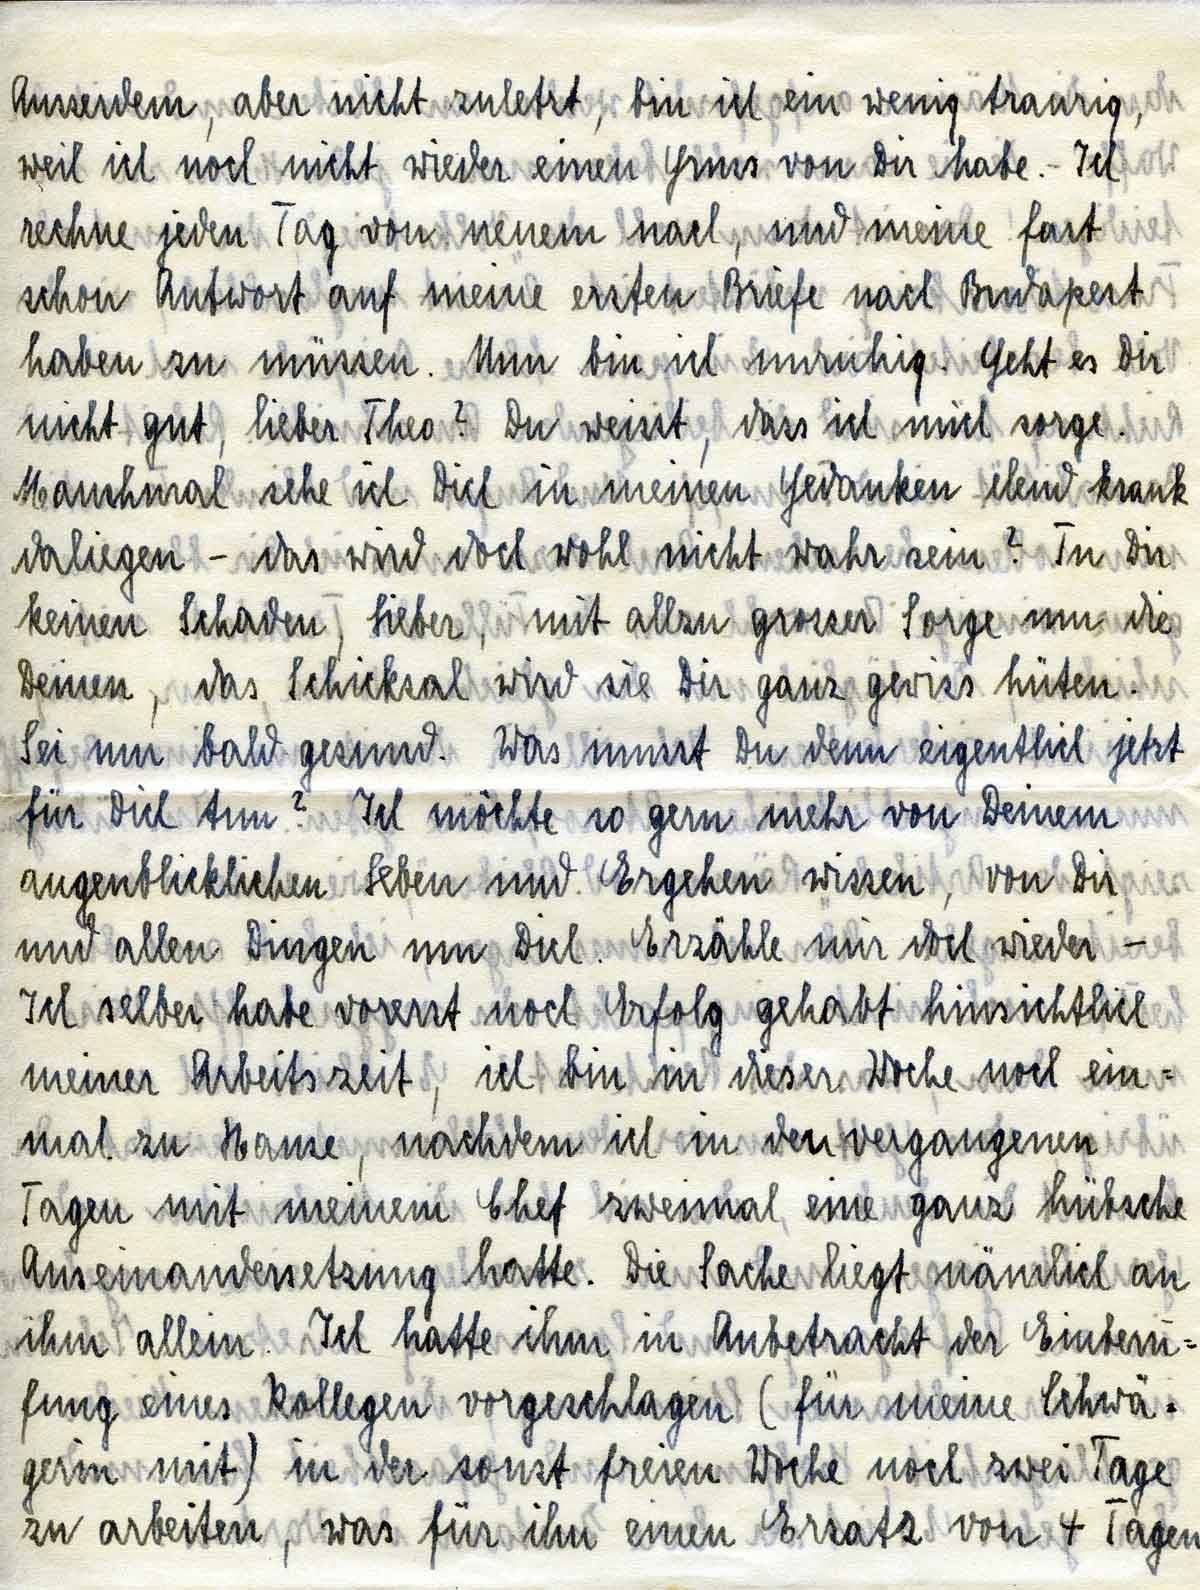 Ausserdem, aber nicht zuletzt, bin ich ein wenig traurig,
weil ich noch nicht wieder einen Gruss von Dir habe. - Ich
rechne jeden Tag von neuem nach, und meine fast
schon Antwort auf meine ersten Briefe nach Budapest
haben zu müssen. Nun bin ich unruhig. Geht es Dir
nicht gut, lieber Theo? Du weisst, dass ich mich sorge.
Manchmal sehe ich Dich in meinen Gedanken elend krank
daliegen - das wird doch wohl nicht wahr sein? Tu Dir
keinen Schaden, Lieber, mit allzu grosser Sorge um die
Deinen, das Schicksal wird sie Dir ganz gewiss hüten.
Sei nur bald gesund. Was musst Du denn eigentlich jetzt
für Dich tun? Ich möchte so gern mehr von Deinem
augenblicklichen Leben und Ergehen wissen, von Dir
und allen Dingen um Dich. Erzähle mir doch wieder -
Ich selber habe vorerst noch Erfolg gehabt hinsichtlich
meiner Arbeitszeit, ich bin in dieser Woche noch ein=
mal zu Hause, nachdem ich in den vergangenen
Tagen mit meinem Chef zweimal eine ganz hübsche
Auseinandersetzung hatte. Die Sache liegt nämlich an
ihm allein. Ich hatte ihm in Anbetracht der Einberu=
fung eines Kollegen vorgeschlagen (für meine Schwä=
gerin mit) in der sonst freien Woche noch zwei Tage
zu arbeiten, was für ihn einen Ersatz von 4 Tagen